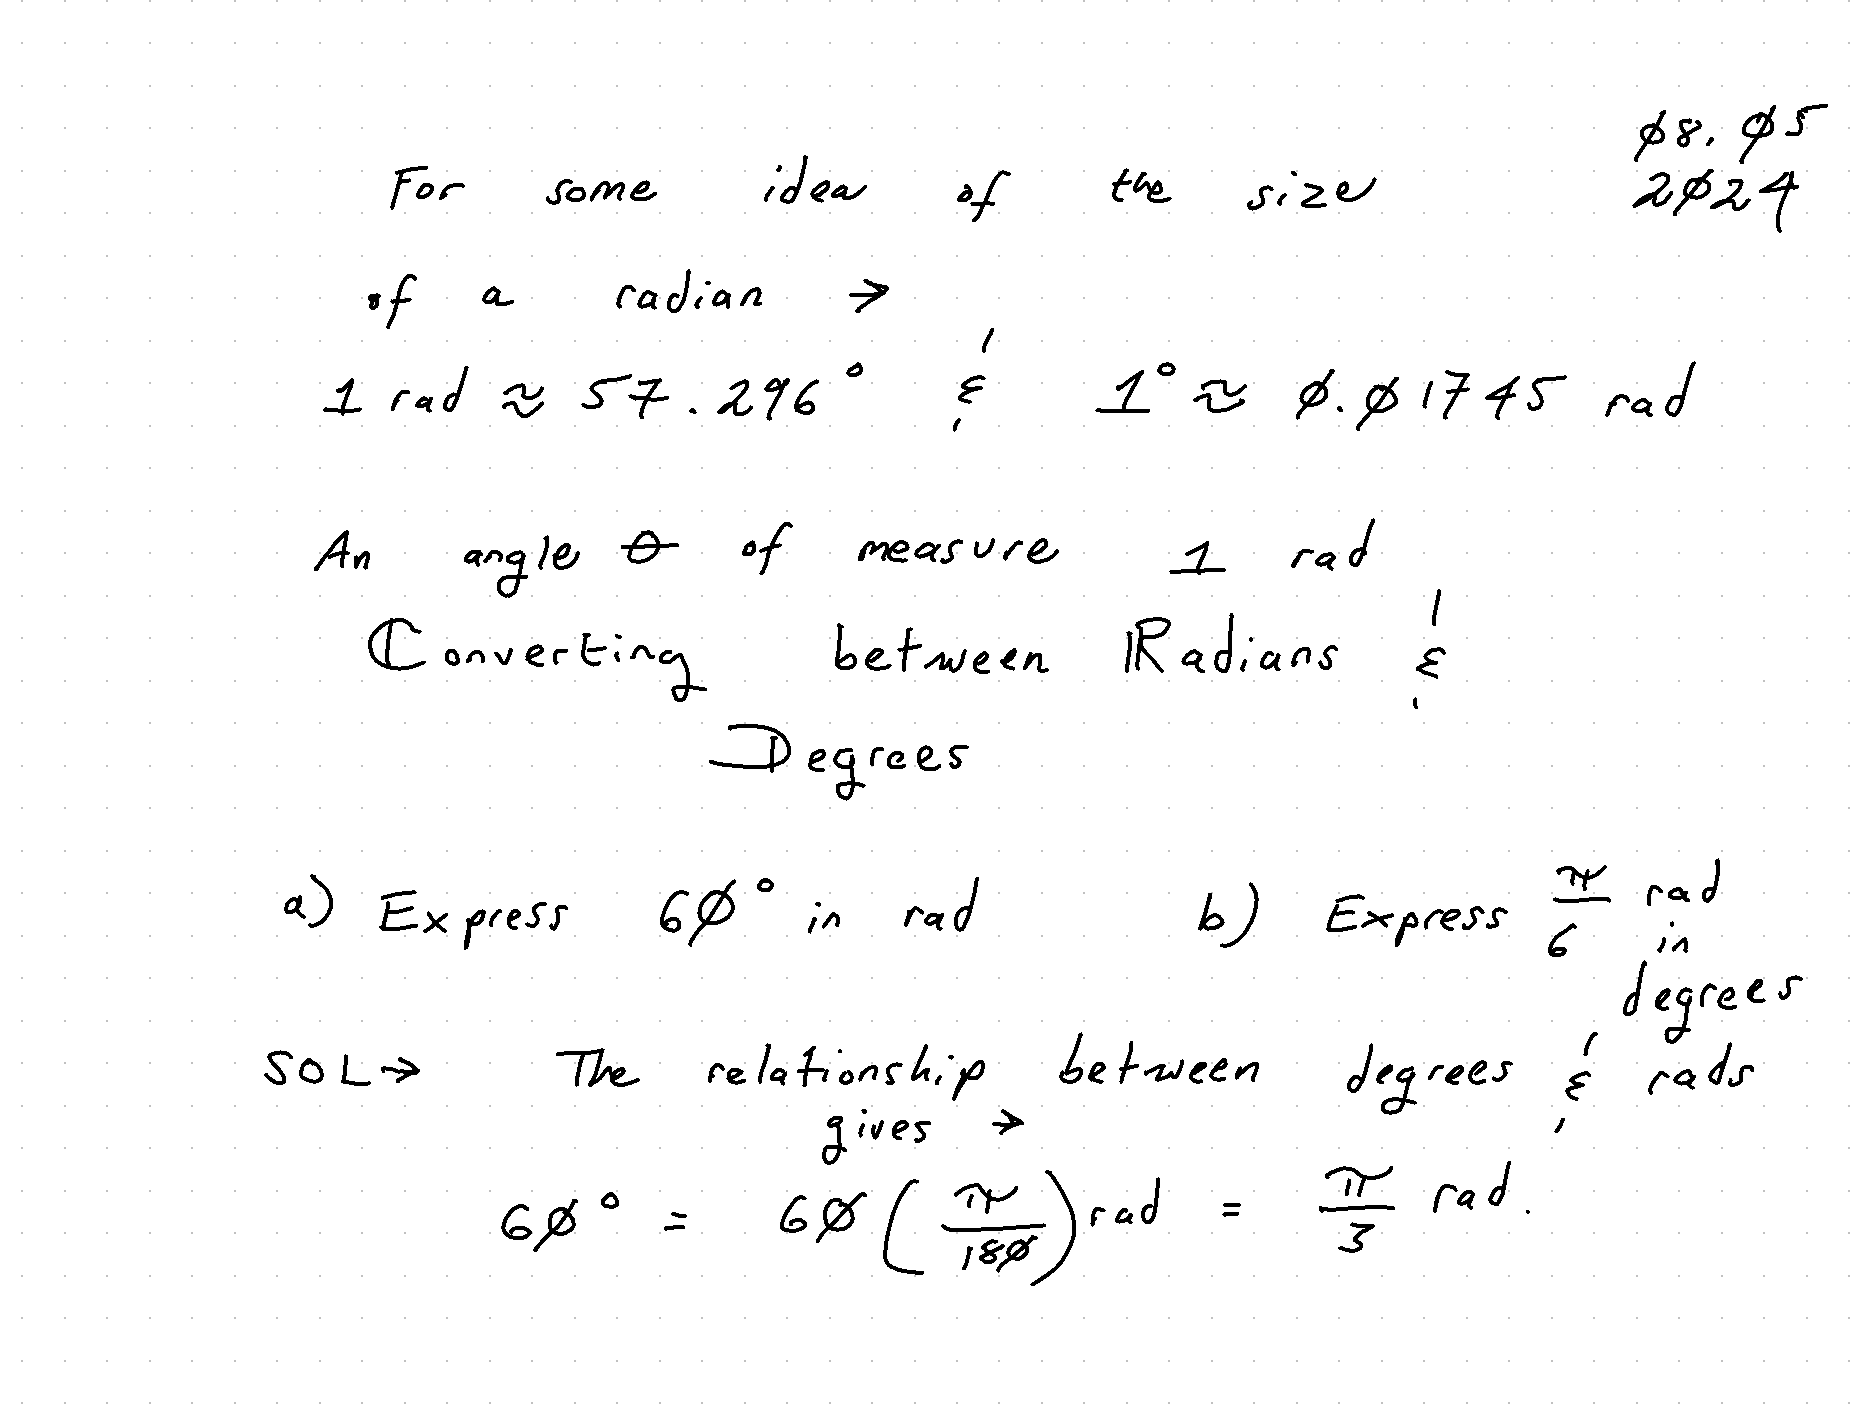 08.05
2024
For some idea of the size
of a radian →
1 rad ≈ 57.296° & 1° ≈ 0.01745 rad
An angle θ of measure 1 rad
Converting between Radians &
Degrees
a) Express 60° in rad
b) Express π/6 rad
in
degrees
SOL → The relationship between degrees & rads
gives →
60° = 60 (π/180) rad = π/3 rad.